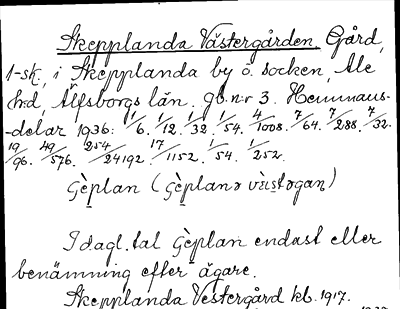 Skepplanda Västergården. Gård,
1-sk. i Skepplanda by o. socken, Ale
hd, Älfsborgs län. Gb.n:r 3. Hemmans-
-delar 1936: 1/6. 1/12. 1/32. 1/54. 4/1008. 7/64. 7/288. 7/32.
19/96. 49/576. 254/24192. 17/1152. 1/54. 1/252.
Gèplan (Gèplanɘ vèistogan)
I dagl. tal Gèplan endast eller
benämning efter ägare.
Skepplanda Vestergård kb. 1917.